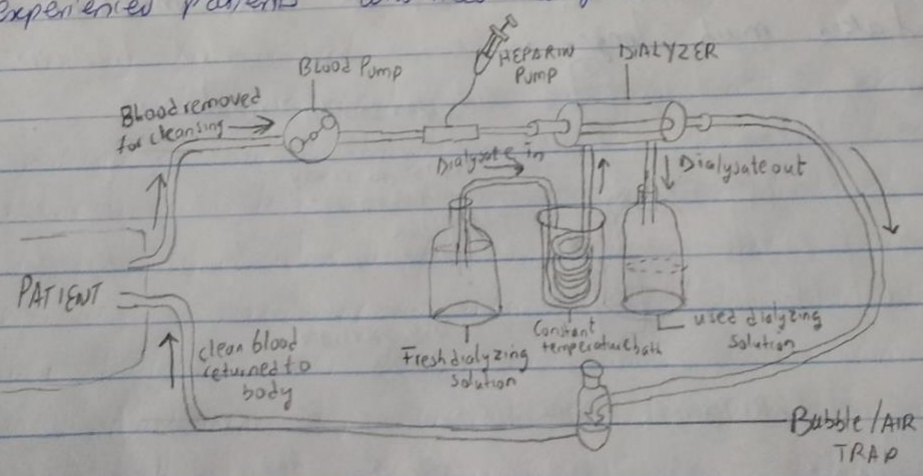 experienced patients
Blood Pump
HEPARIN
PUMP
DIALYZER
Blood removed
for cleansing
Dialysate in
Dialysate out
PATIENT
clean blood
returned to
body
Fresh dialyzing
solution
Constant
temperature bath
used dialyzing
solution
Bubble/AIR
TRAP